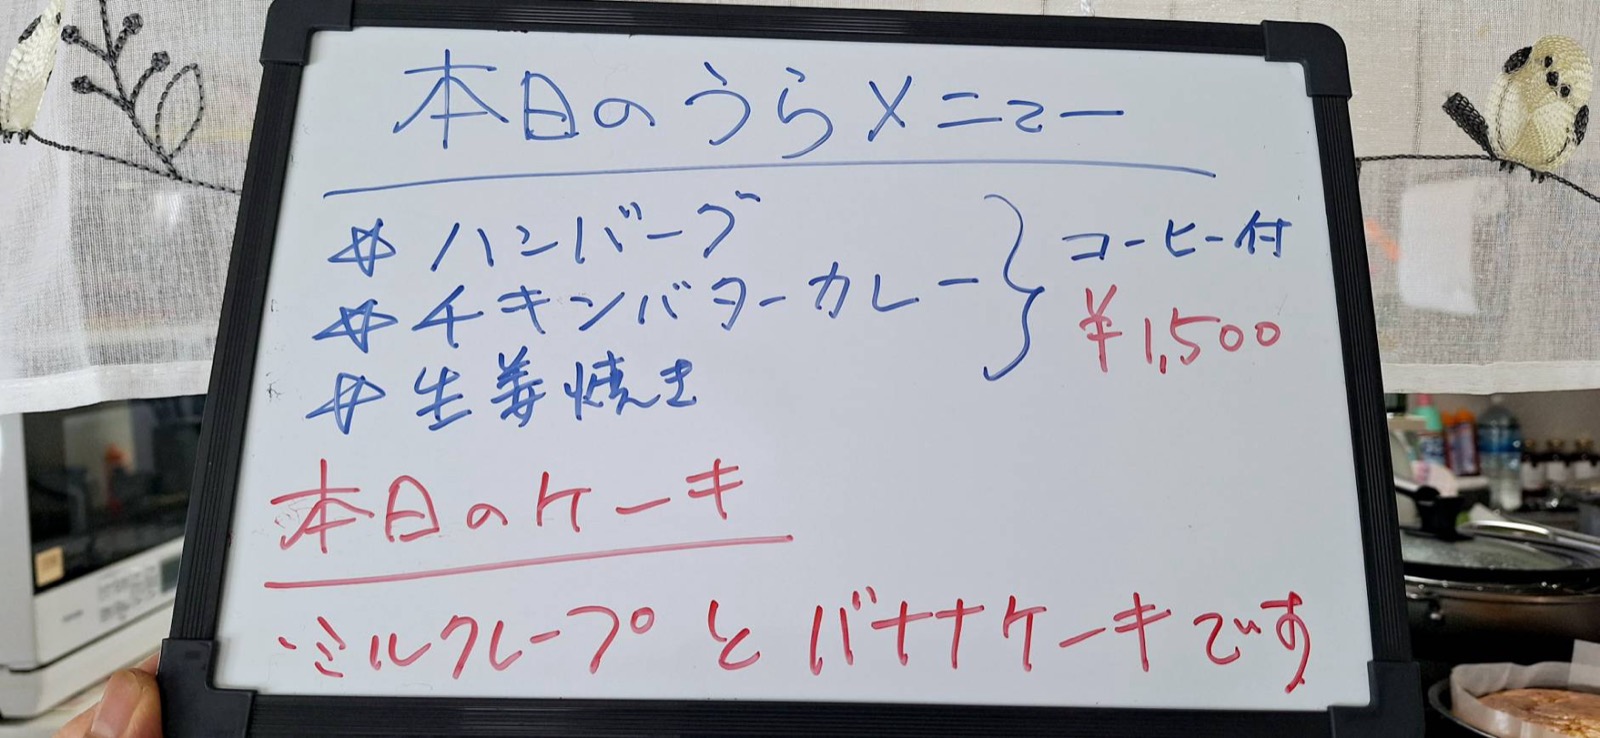 本日のうらメニュー
☆ ハンバーグ
☆ チキンバターカレー
☆ 生姜焼き
} コーヒー付
¥1,500
本日のケーキ
・ミルクレープ と バナナケーキです